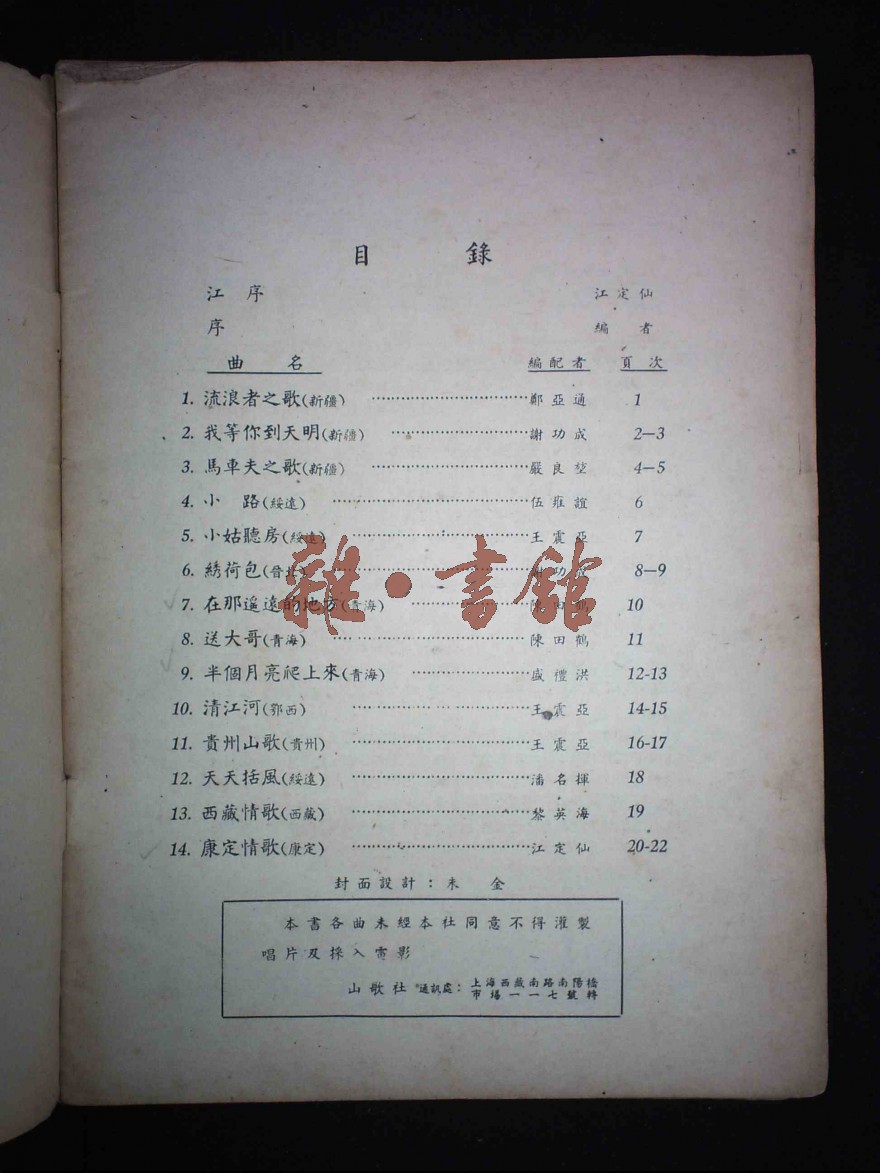 目 錄
江 序 江 定 仙
序 編 者
曲 名 編 配 者 頁 次
1. 流浪者之歌(新疆) 鄭 亞 通 1
2. 我等你到天明(新疆) 謝 功 成 2—3
3. 馬車夫之歌(新疆) 嚴 良 堃 4—5
4. 小 路(綏遠) 伍 雍 誼 6
5. 小姑聽房(綏遠) 王 震 亞 7
6. 綉荷包(晉北) 謝 功 成 8—9
7. 在那遥遠的地方(青海) 陳 田 鶴 10
8. 送大哥(青海) 陳 田 鶴 11
9. 半個月亮爬上來(青海) 盛 禮 洪 12-13
10. 清江河(鄂西) 王 震 亞 14-15
11. 貴州山歌(貴州) 王 震 亞 16-17
12. 天天括風(綏遠) 潘 名 揮 18
13. 西藏情歌(西藏) 黎 英 海 19
14. 康定情歌(康定) 江 定 仙 20-22
雜·書館
封 面 設 計 : 朱 金
本 書 各 曲 未 經 本 社 同 意 不 得 灌 製
唱 片 及 採 入 電 影
山 歌 社 通訊處: 上海西藏南路南陽橋
市場一一七號轉